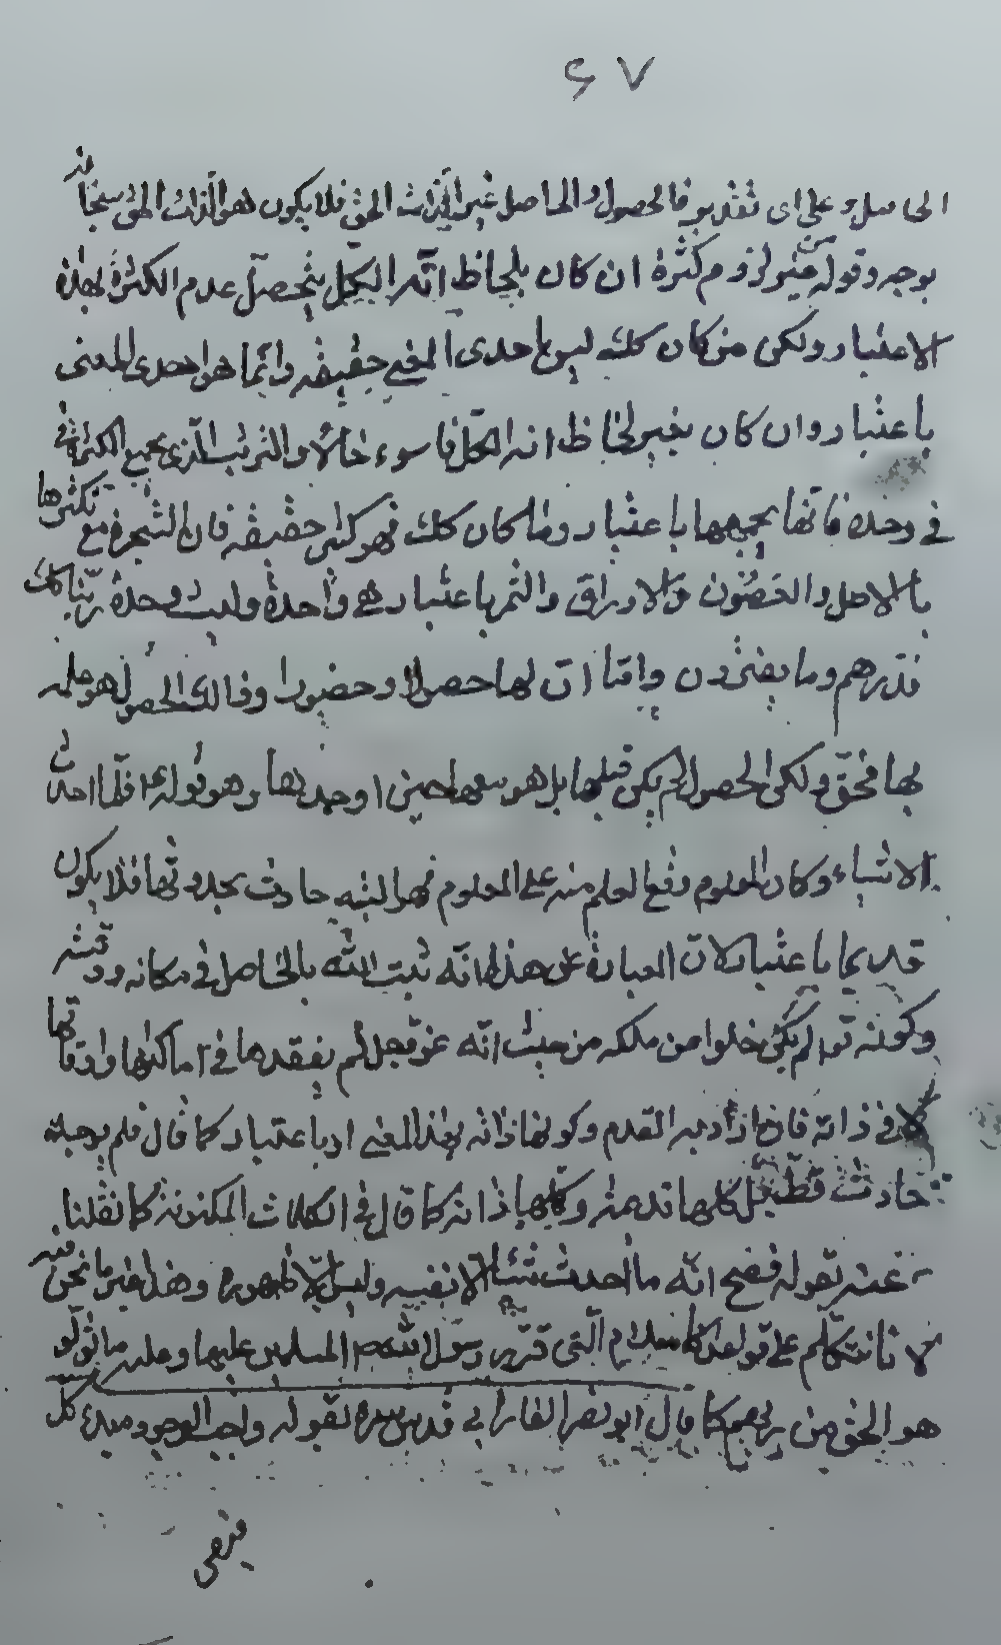 ٦٧
الحاصل و على اى تقدير فالحصول والحاصل غير الذات الحق فلا يكون هو الذات الحق سبحانه
بوجه وقوله من غير لزوم كثرة ان كان بلحاظ انه الكل يتحصل عدم الكثرة بهذا
الاعتبار ولكن من كان كذلك ليس باحدى المعنى حقيقة وانما هو احدى المعنى
باعتبار وان كان بغير لحاظ انه الكل فاسوء حالا والترتيب الذى يجمع الكثرة
فى وحدة فانما يجمعها باعتبار وما كان كذلك فهو كثير حقيقة فان الشجرة مع تكثرها
بالاصل والغصون والاوراق والثمر باعتبار هى واحدة وليست وحدة ربنا كذلك
فذرهم وما يفترون واما ان لها حصولا وحضورا وذلك الحصول هو علمه
بها فحق ولكن الحصول لم يكن قبلها بل هو معها حين اوجدها وهو قوله ع فلما احدث
الاشياء وكان المعلوم وقع العلم منه على المعلوم فهو حادث بحدوثها فلا يكون
قديما باعتبار لان العبارة عن هذا انه ثبت لله بالحاصل فى مكانه ووقته
وكونه تع لم يكن خلوا من ملكه من حيث انه عز وجل لم يفقدها فى اماكنها واوقاتها
لا فى ذاته فان اراد به القدم وكونها ذاته بهذا المعنى او باعتبار كما قال فلم يوجد
حادث قط بل كلها قديمة وكلها ذاته كما قال فى الكلمات المكنونة كما نقلنا
عنه بقوله فصح انه ما احدث شيئا الا نفسه وليس الا ظهوره وهذا غير ما نحن فيه
لانا نتكلم على قواعد الاسلام التى قررها رسول الله ص
هو الحق من ربهم كما قال ابو نصر الفارابى قدس سره بقوله واجب الوجود مبدء كل
فيض